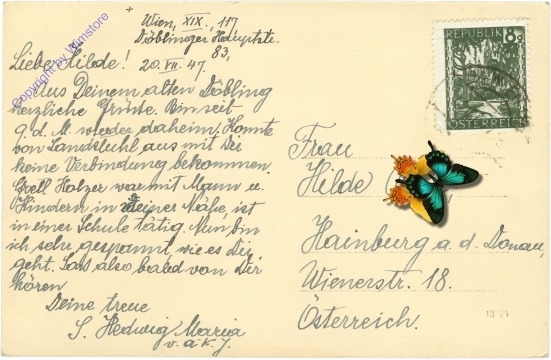 Wien, XIX., 117
Döblinger Hauptstr.
83,
Liebe Hilde! 20. VII. 47.
Aus Deinem alten Döbling
herzliche Grüße. Bin seit
9. d. M. wieder daheim. Konnte
von Landstuhl aus mit Dir
keine Verbindung bekommen.
Gretl Holzer war mit Mann u.
Kindern in meiner Nähe, ist
in einer Schule tätig. Nun bin
ich sehr gespannt, wie es Dir
geht. Laß also bald von Dir
hören
Deine treue
S. Hedwig Maria
v. a. k. J.
Copyright by Wimstore
REPUBLIK 8
ÖSTERREICH
Frau
Hilde
Hainburg a. d. Donau,
Wienerstr. 18.
Österreich.